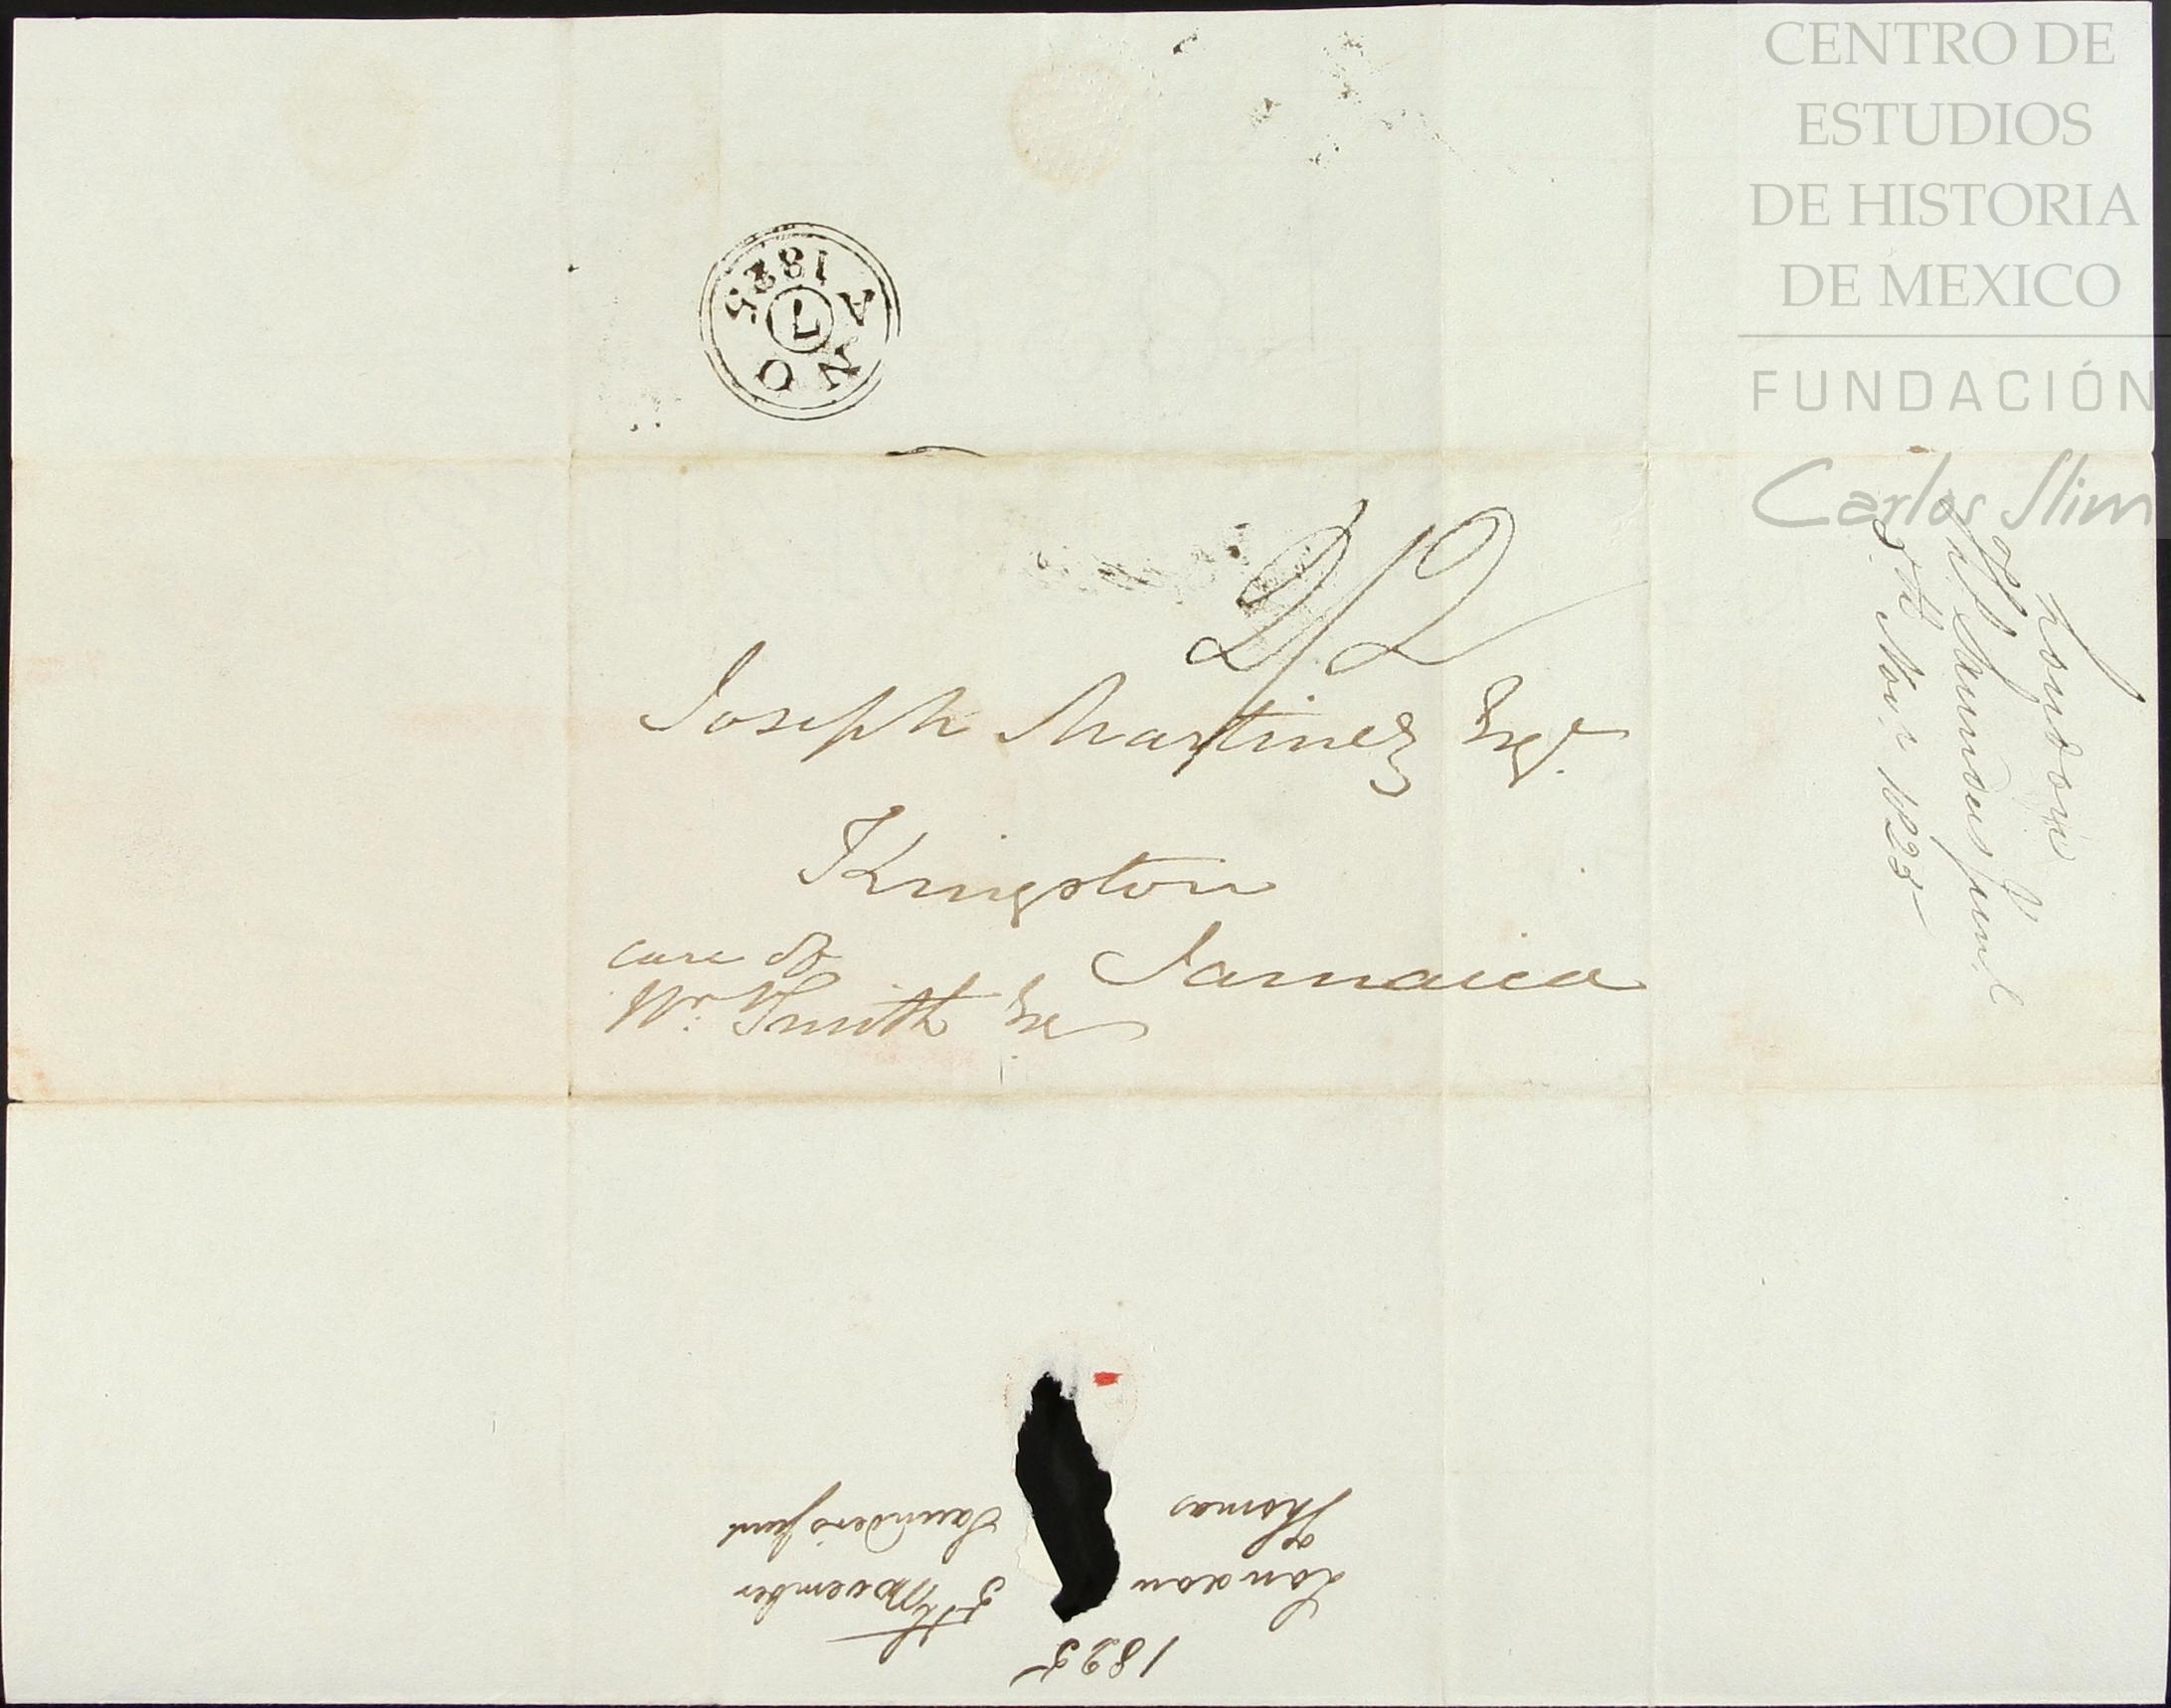 CENTRO DE
ESTUDIOS
DE HISTORIA
DE MEXICO
FUNDACIÓN
Carlos Slim
A
1825
7
NO
2/2
Joseph Martinez Esqr.
Kingston
Jamaica
care of
Wm. Smith Esq
London
Th. Saunders junr
5th Novr 1825
1825
London 5th November
Thomas Saunders junr